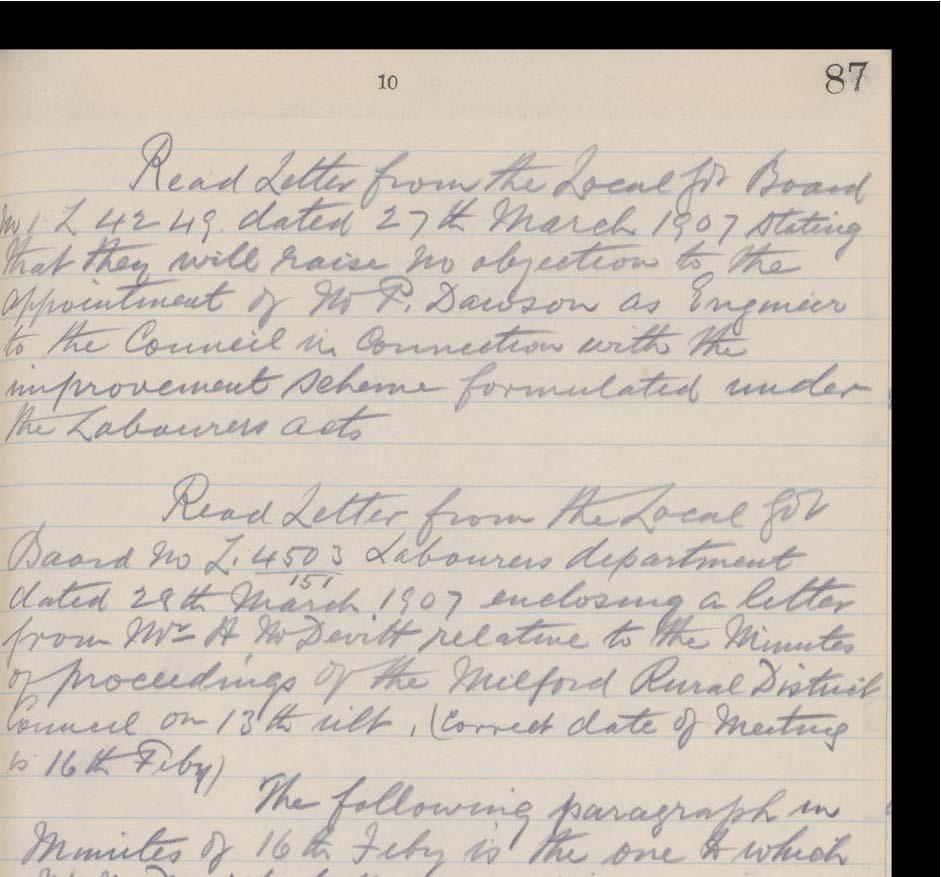 10
87
Read Letter from the Local Govt Board
No L 4249. dated 27th March 1907 stating
that they will raise no objection to the
appointment of Mr P. Dawson as Engineer
to the Council in Connection with the
improvement Scheme formulated under
the Labourers acts
Read Letter from the Local Govt
Board No L. 4503 Labourers department
151
dated 28th March 1907 enclosing a letter
from Mr H McDevitt relative to the Minutes
of proceedings of the Milford Rural District
Council on 13th ult, (Correct date of Meeting
is 16th Feby)
The following paragraph in
Minutes of 16th Feby is the one to which